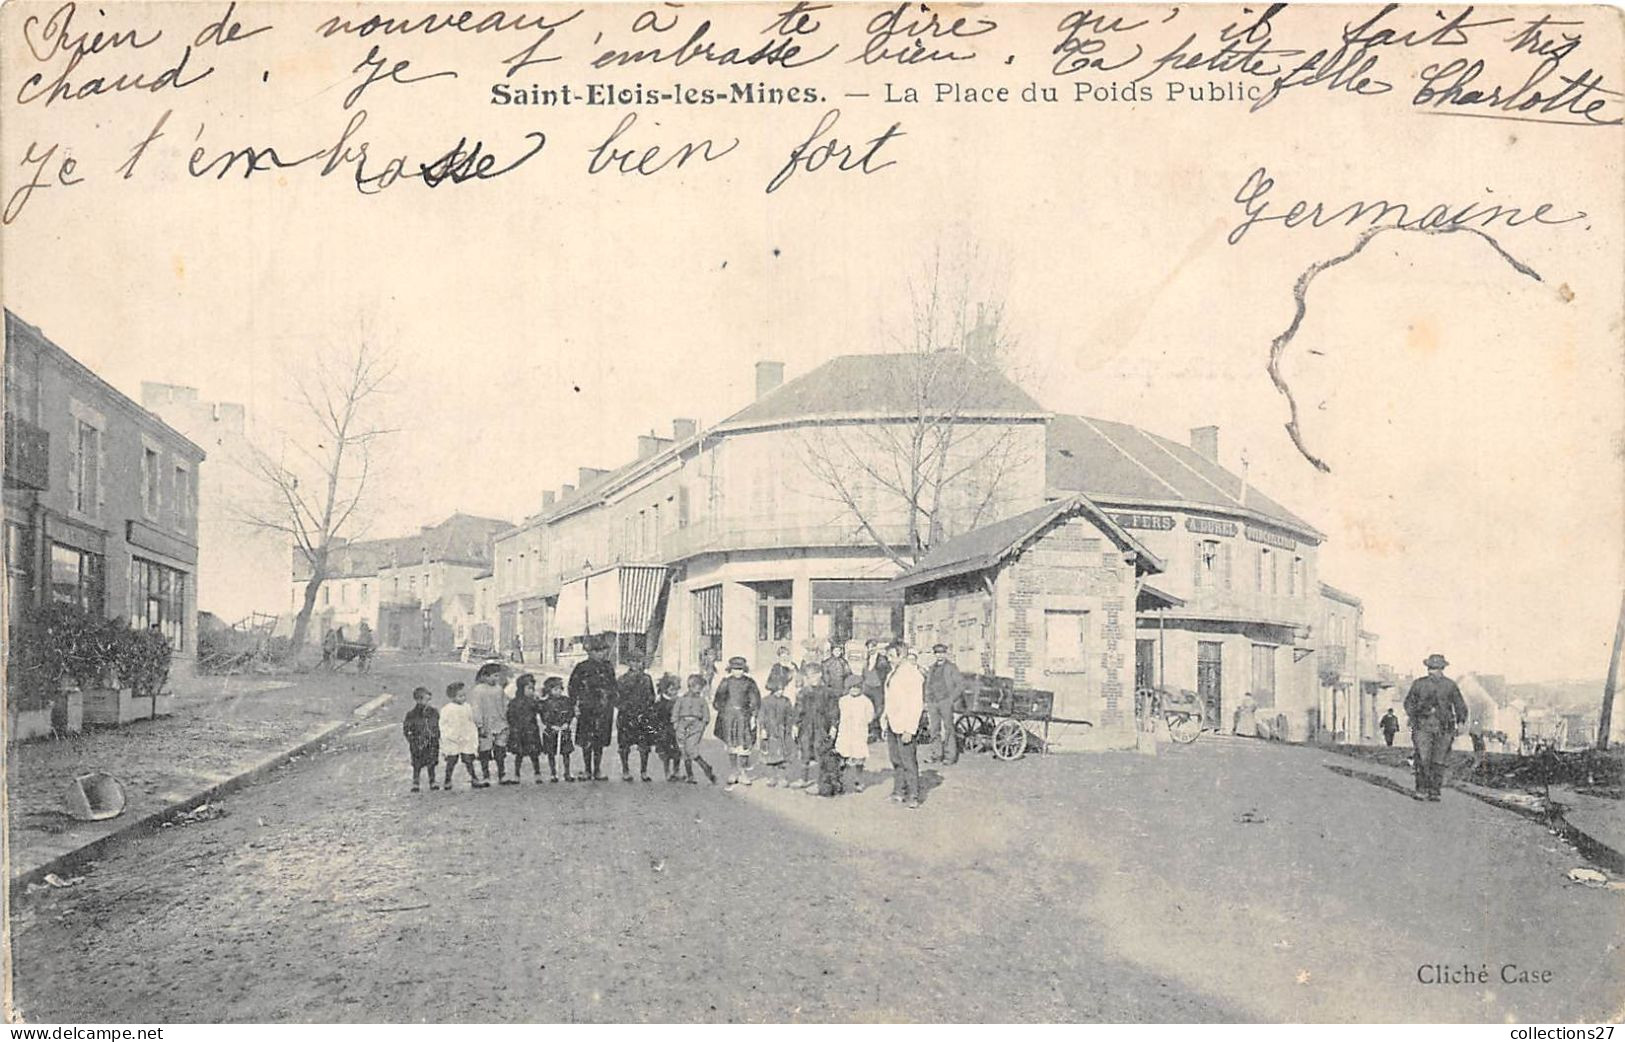 Rien de nouveau à te dire qu'il fait très
chaud. Je t'embrasse bien. Ta petite fille Charlotte
Saint-Elois-les-Mines. — La Place du Poids Public
Je t'embrasse bien fort
Germaine.
FERS
Cliché Case
www.delcampe.net
collections27